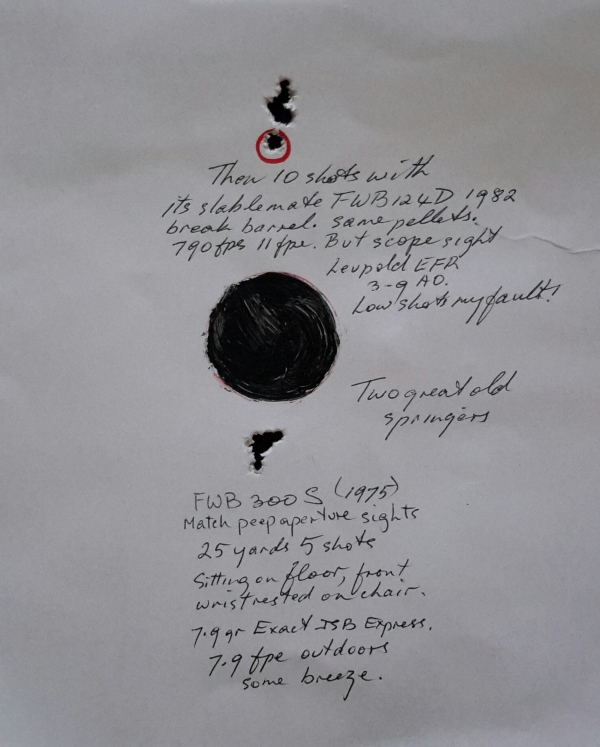 Then 10 shots with
its stablemate FWB124D 1982
break barrel. same pellets.
790fps 11 fpe. But scope sight
Leupold EFR
3-9 AO.
Low shots my fault!
Two great old
springers
FWB 300 S (1975)
Match peep aperture sights
25 yards 5 shots
Sitting on floor, front
wrist rested on chair.
7.9 gr Exact JSB Express.
7.9 fpe outdoors
some breeze.